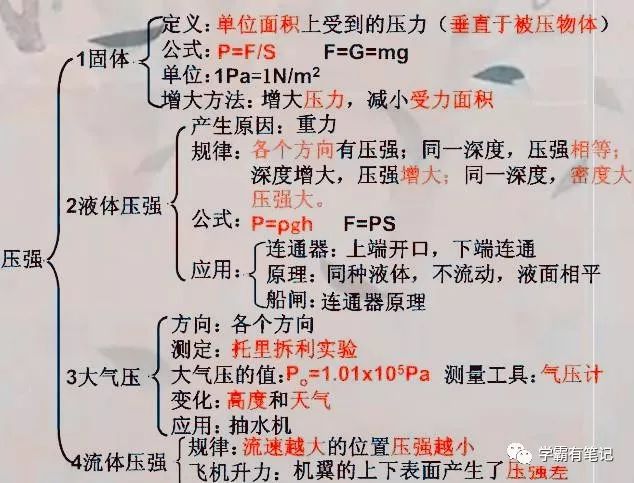 定义：单位面积上受到的压力（垂直于被压物体）
1固体
公式：P=F/S F=G=mg
单位：1Pa=1N/m²
增大方法：增大压力，减小受力面积
产生原因：重力
规律：各个方向有压强；同一深度，压强相等；
深度增大，压强增大；同一深度，密度大
压强大。
2液体压强
公式：P=ρgh F=PS
压强
应用：
连通器：上端开口，下端连通
原理：同种液体，不流动，液面相平
船闸：连通器原理
方向：各个方向
测定：托里拆利实验
3大气压
大气压的值：P₀=1.01x10⁵Pa 测量工具：气压计
变化：高度和天气
应用：抽水机
4流体压强
规律：流速越大的位置压强越小
飞机升力：机翼的上下表面产生了压强差
学霸有笔记